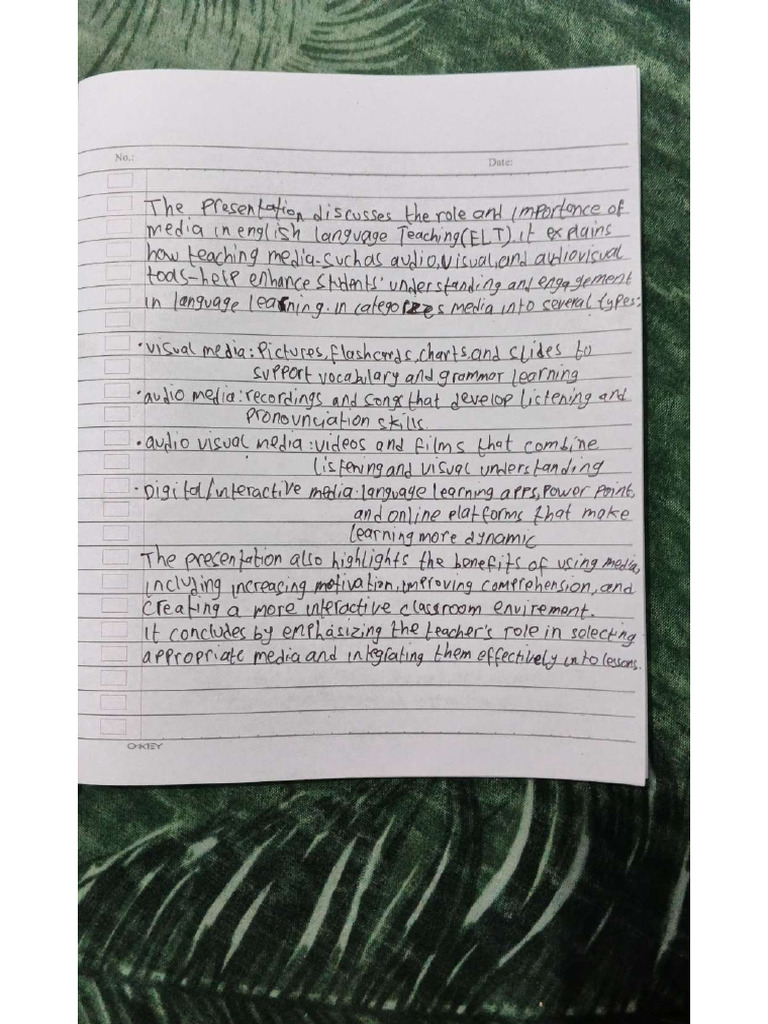 No.:
Date:
The presentation discusses the role and importance of
media in english language Teaching(ELT). it explains
how teaching media-such as audio, visual, and audiovisual
tools-help enhance students' understanding and engagement
in language learning. in categorizes media into several types:
• visual media: Pictures, flashcards, charts, and slides to
support vocabulary and grammar learning
• audio media: recordings and songs that develop listening and
pronounciation skills.
• audio visual media: videos and films that combine
listening and visual understanding
• Digital/interactive media: language learning apps, power point,
and online platforms that make
learning more dynamic
The presentation also highlights the benefits of using media,
including increasing motivation, improving comprehension, and
creating a more interactive classroom envirement.
it concludes by emphasizing the teacher's role in selecting
appropriate media and integrating them effectively into lessons.